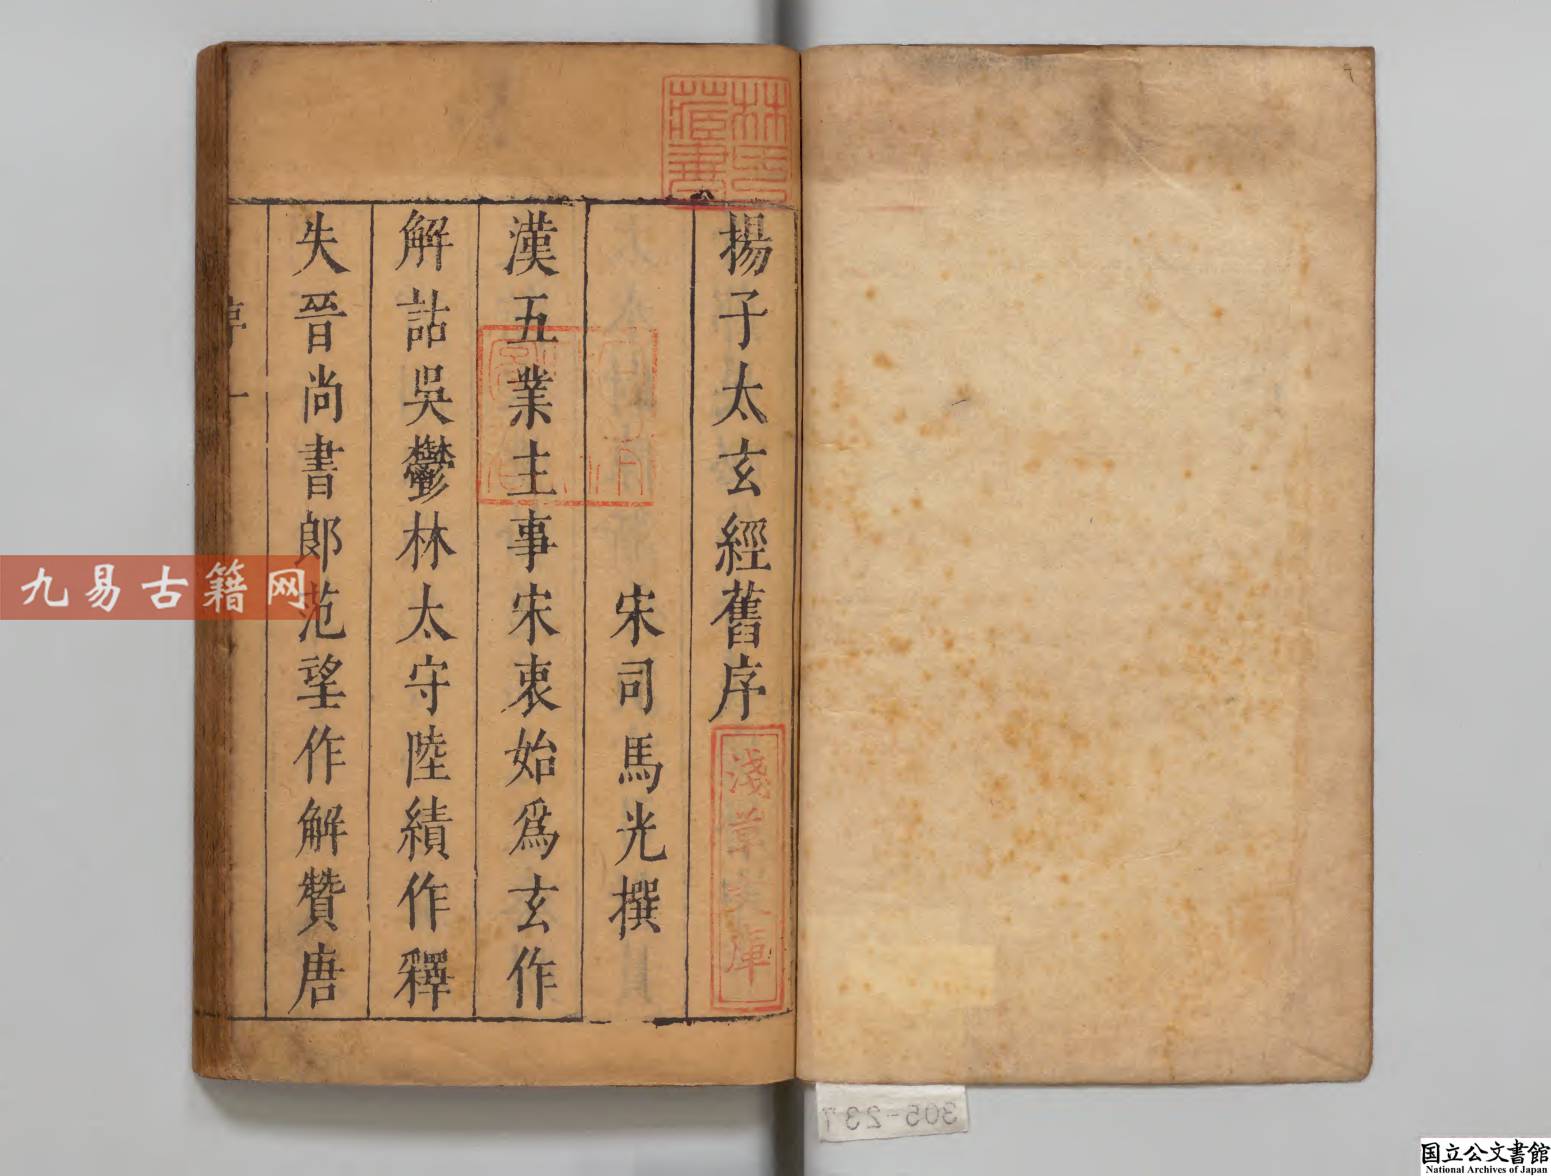 揚子太玄經舊序
宋司馬光撰
漢五業主事宋衷始爲玄作
解詁吳鬱林太守陸績作釋
失晉尚書郎范望作解贊唐
林氏藏書
淺草文庫
九易古籍网
305-237
国立公文書館
National Archives of Japan